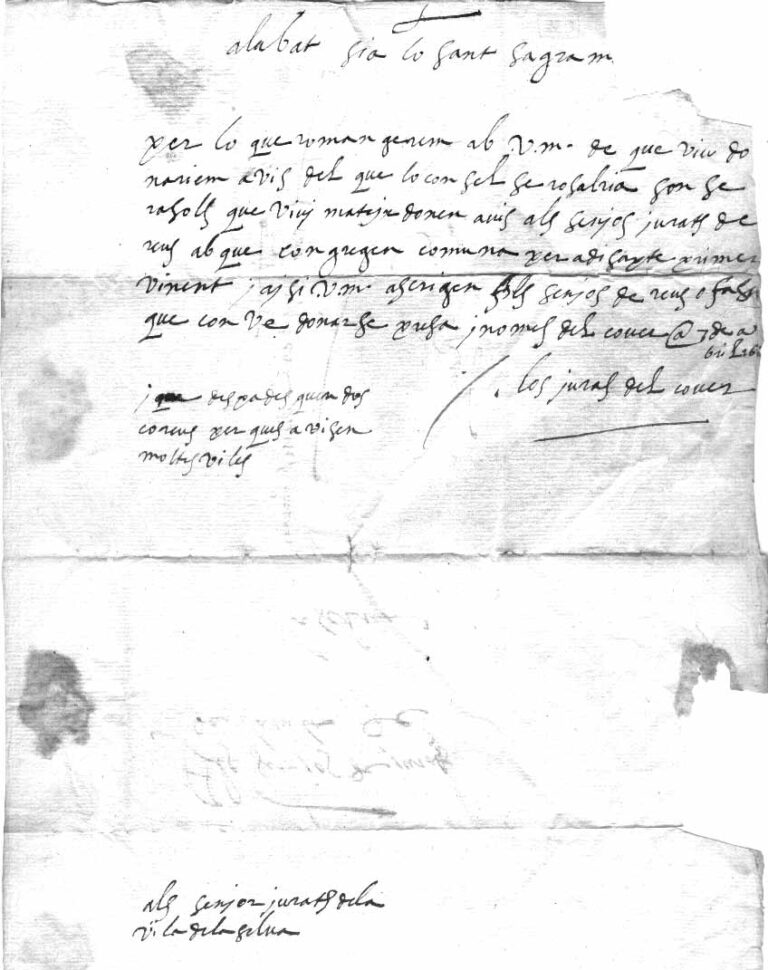 alabat sia lo sant sagram
per lo que romangerem ab v.m. de que viu do
nariem avis del que lo consel se rosalvia son se
rasols que vuy mateix donen avis als senjos jurats de
reus ab que congregen comuna per a disapte primer
vinent j aysi v.m. ascrigen als senjos de reus o fasen
que conve donarse presa j nomes del cover @ 7 de a
bril
los juras del cover
j que despades quen dos
coreus per ques avisen
moltes viles
als senjor jurats dela
vila dela selva